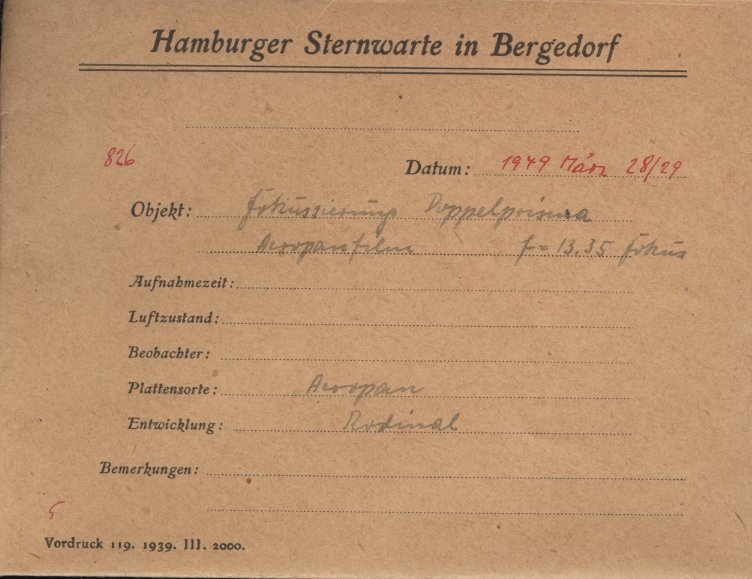 Hamburger Sternwarte in Bergedorf
826
Datum: 1949 März 28/29
Objekt: Fokussierung Doppelprisma
Aeropanfilm f = 13.35 Fokus
Aufnahmezeit:
Luftzustand:
Beobachter:
Plattensorte: Aeropan
Entwicklung: Rodinal
Bemerkungen:
5
Vordruck 119. 1939. III. 2000.